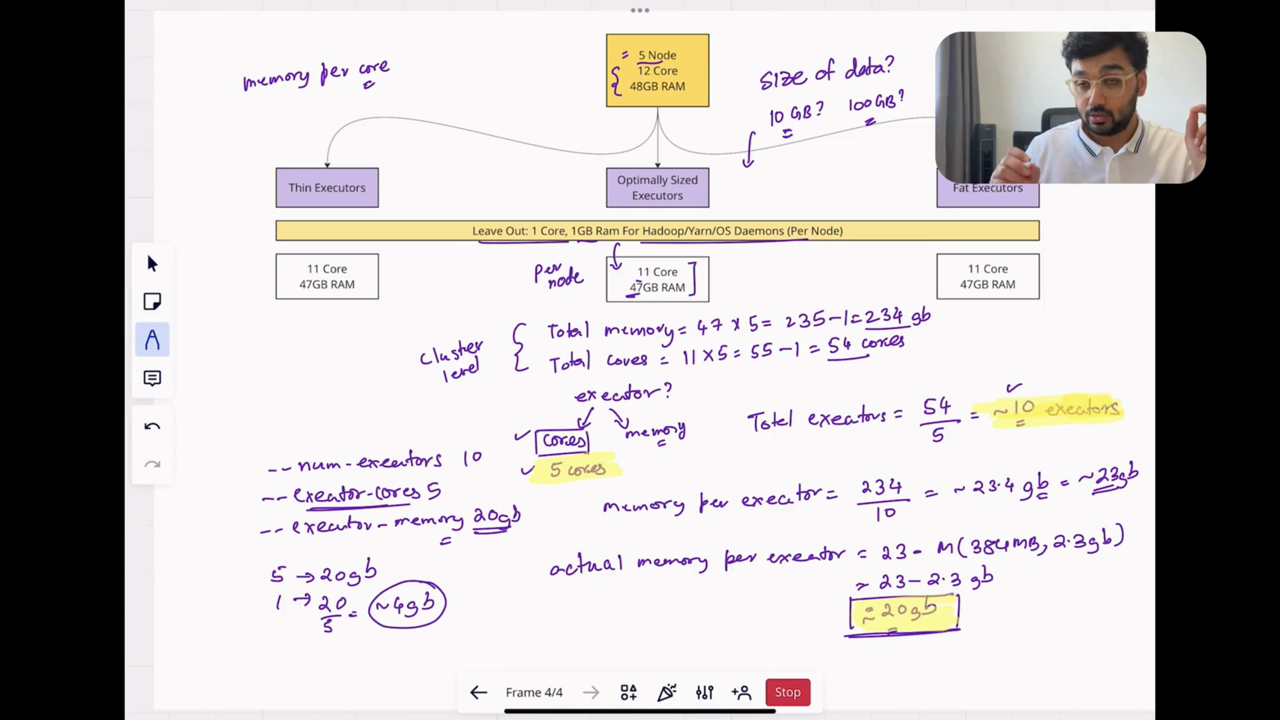 memory per core
= 5 Node
12 Core
48GB RAM
size of data?
10 GB? 100GB?
Thin Executors
Optimally Sized
Executors
Fat Executors
Leave Out: 1 Core, 1GB Ram For Hadoop/Yarn/OS Daemons (Per Node)
11 Core
47GB RAM
per
node
11 Core
47GB RAM
11 Core
47GB RAM
cluster
level
Total memory = 47 x 5 = 235-1 = 234 gb
Total cores = 11 x 5 = 55-1 = 54 cores
executor?
cores
memory
5 cores
Total executors = 54/5 = ~10 executors
--num-executors 10
--executor-cores 5
--executor-memory 20gb
5 → 20gb
1 → 20/5 = ~4gb
memory per executor = 234/10 = ~23.4 gb = ~23gb
actual memory per executor = 23 - M(384MB, 2.3gb)
≈ 23-2.3 gb
≈ 20gb
Frame 4/4
Stop